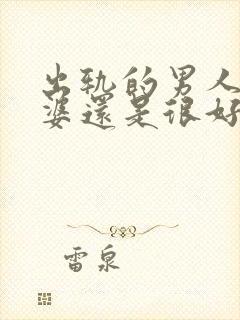 出轨的男人
婆還是很好
雷泉